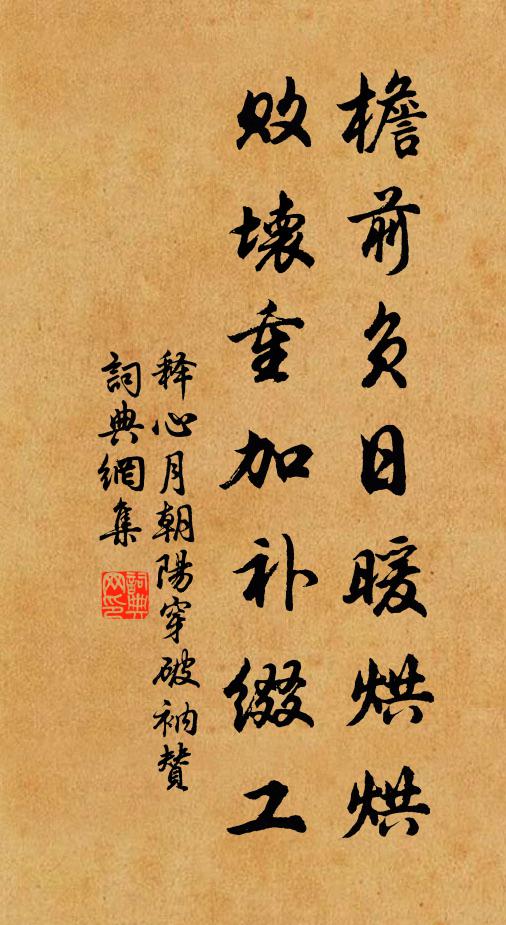 檐前负日暖烘烘
败壞重加补缀工
释心月朝陽穿破衲贊
詞典網集
詞典网印